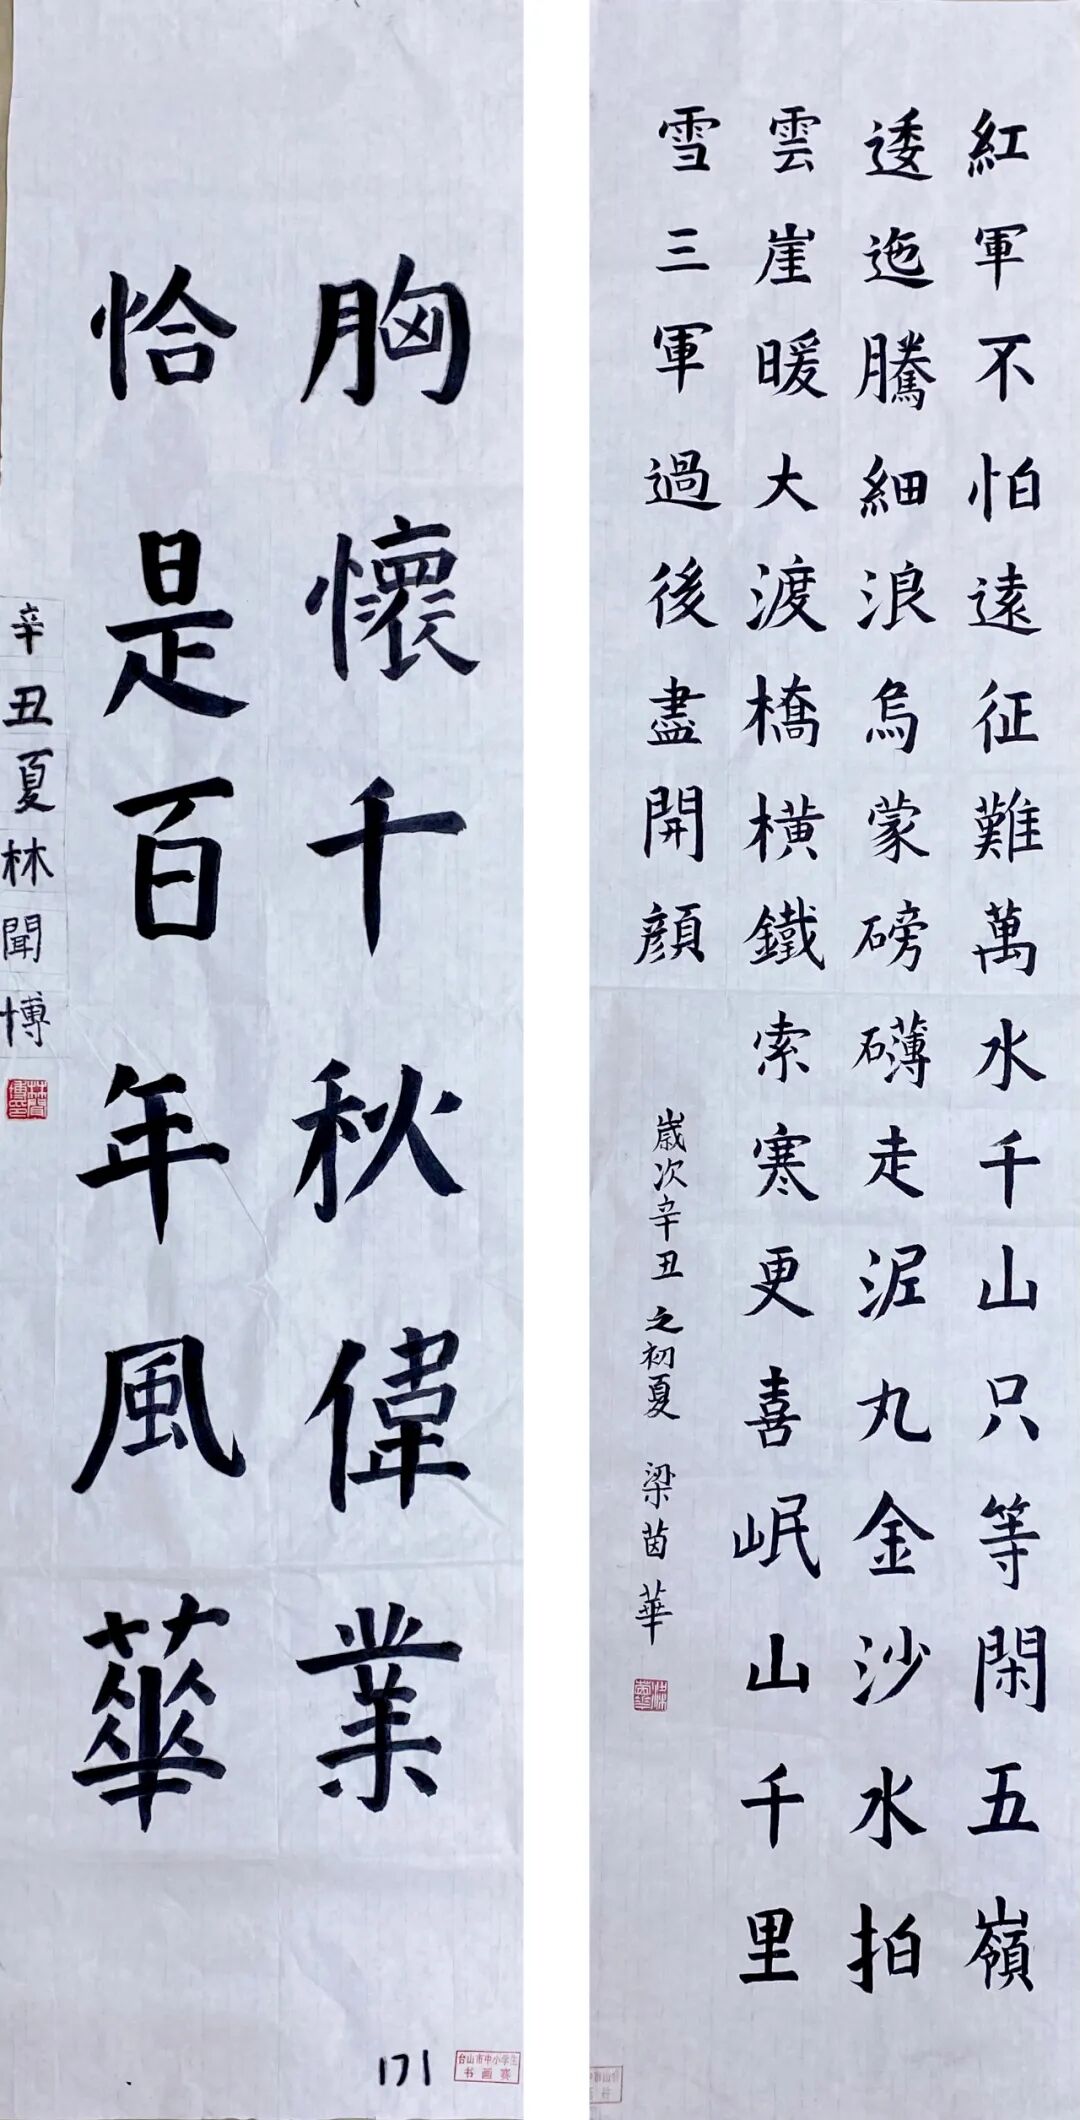 胸懷千秋偉業
恰是百年風華
辛丑夏林聞博
171
台山市中小学生
书画赛
紅軍不怕遠征難萬水千山只等閑五嶺
逶迤騰細浪烏蒙磅礴走泥丸金沙水拍
雲崖暖大渡橋橫鐵索寒更喜岷山千里
雪三軍過後盡開顔
歲次辛丑之初夏 梁茵華